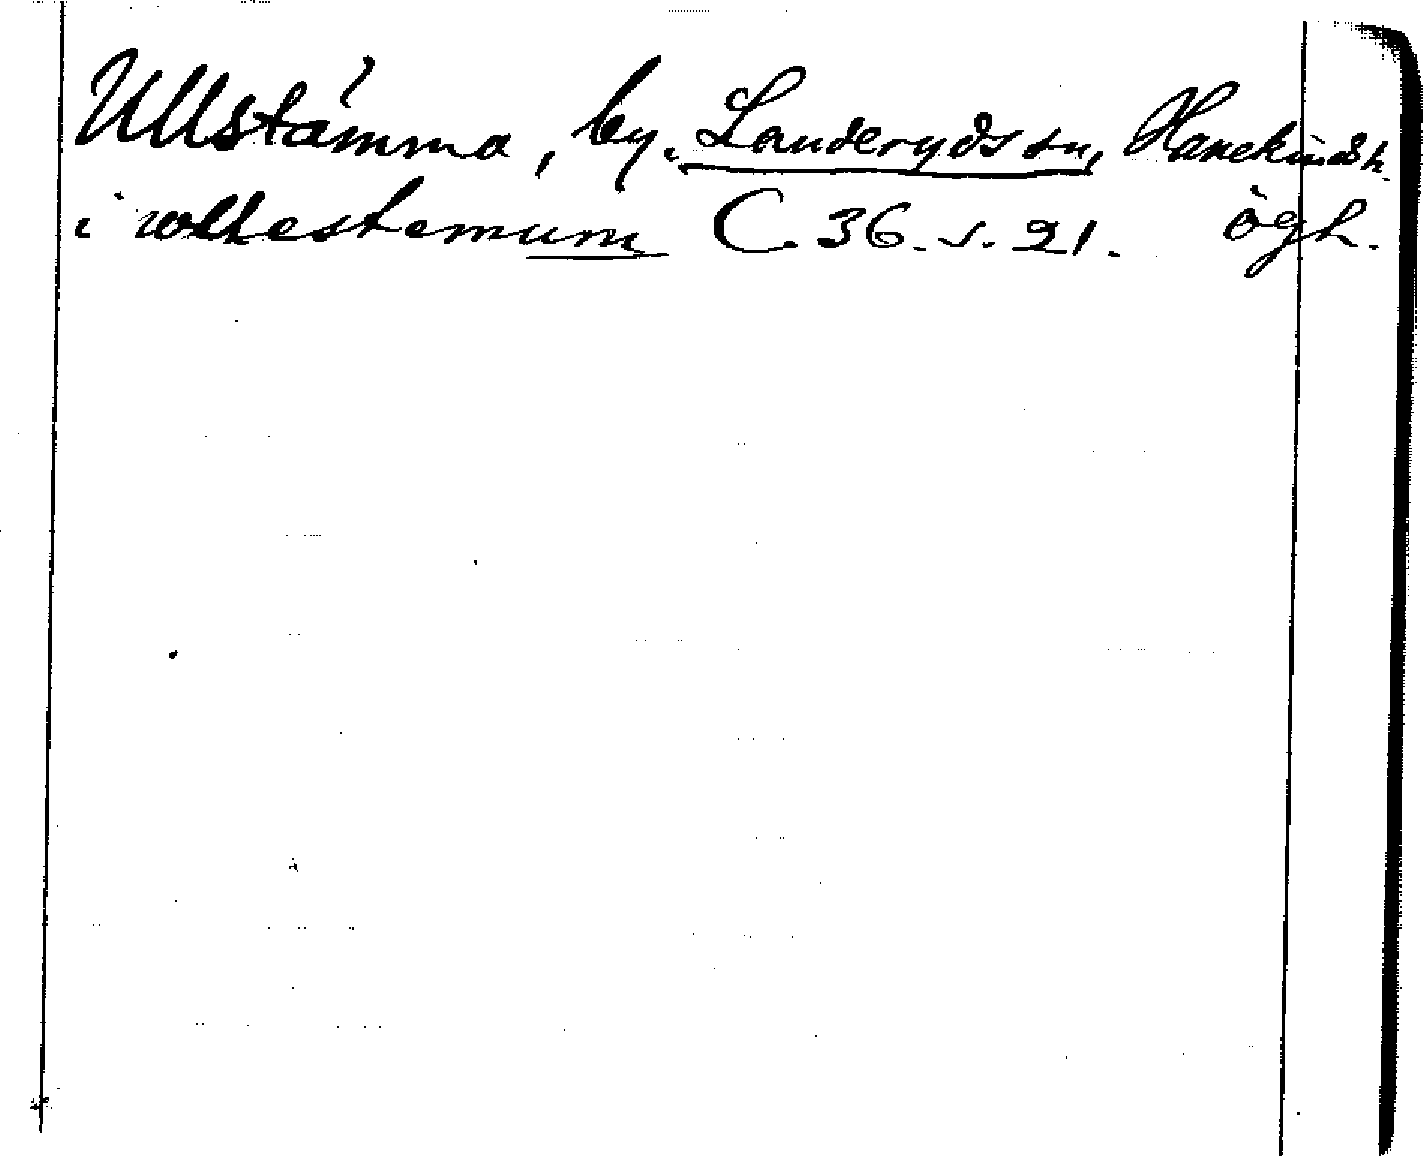 Ullstämma, by. Landeryds sn, Hanekinds h.
i wllestemum C. 36. s. 21. ögh.